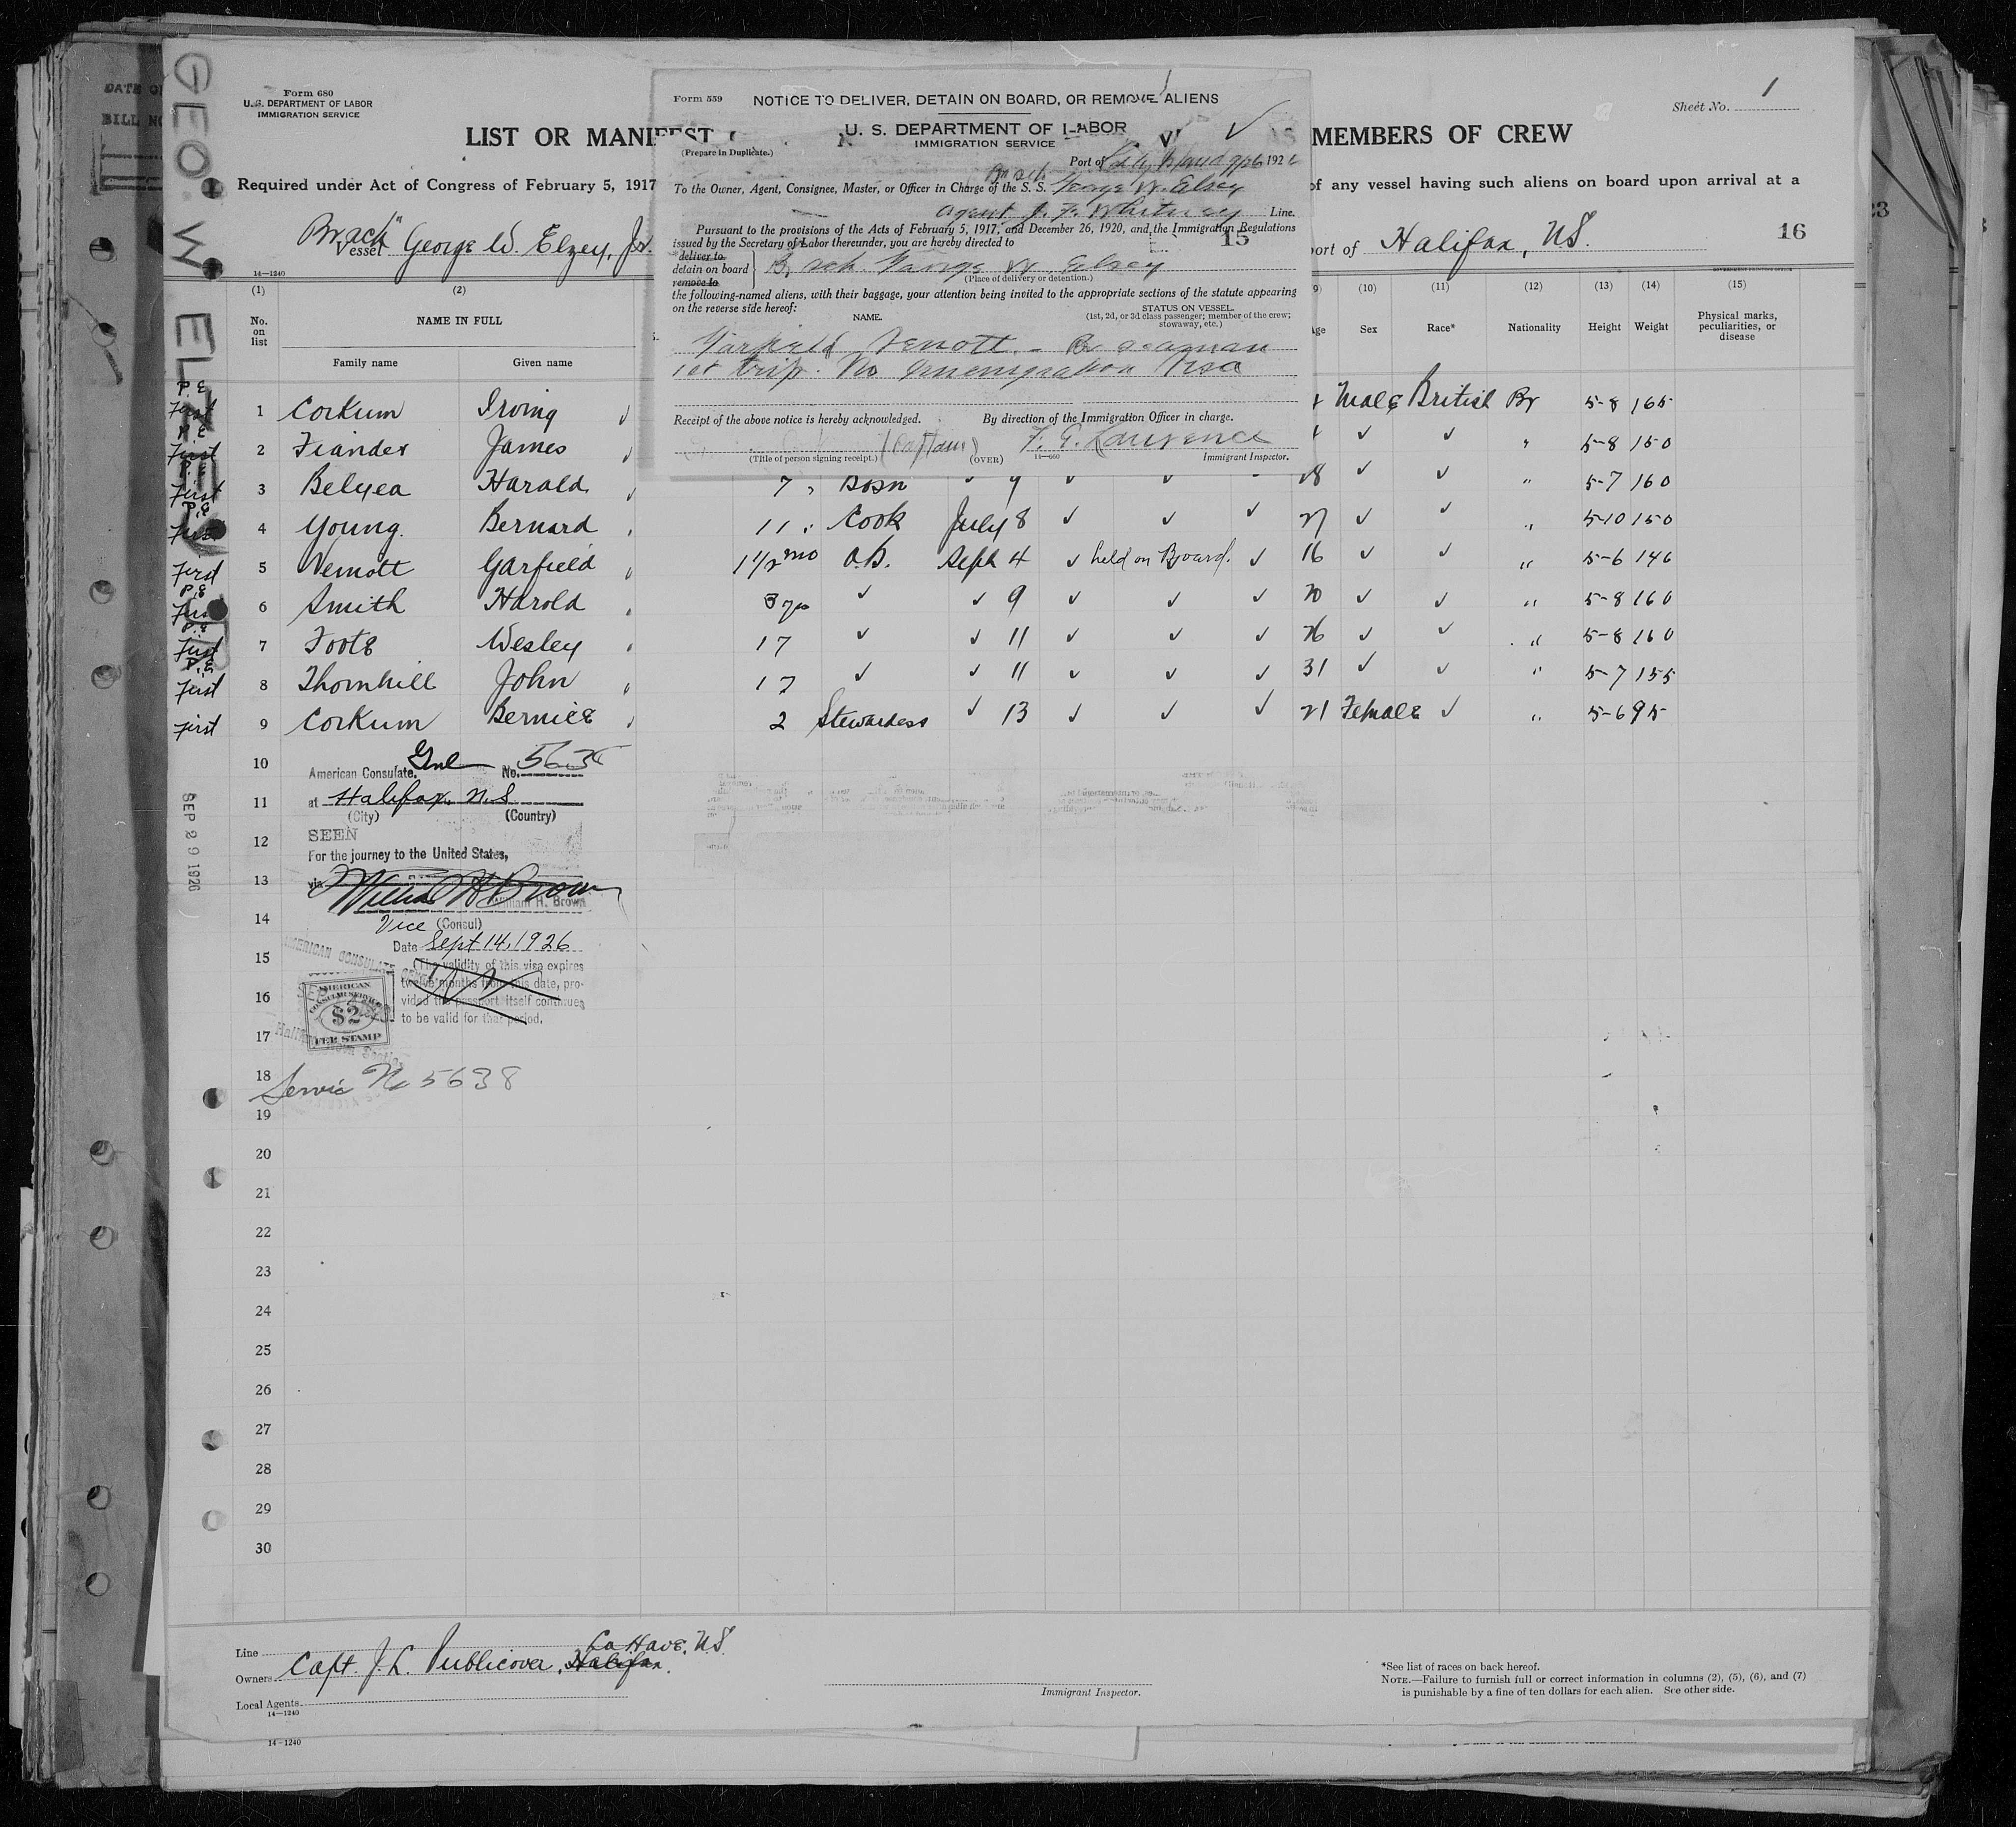 GEO. W. ELZEY JR
SEP 29 1926
DATE OF
BILL NO
Form 680
U. S. DEPARTMENT OF LABOR
IMMIGRATION SERVICE
Sheet No. 1
LIST OR MANIFEST
MEMBERS OF CREW
Required under Act of Congress of February 5, 1917
of any vessel having such aliens on board upon arrival at a
Vessel George W. Elzey, Jr.
port of Halifax, NS.
16
23
14—1240
Form 559
NOTICE TO DELIVER, DETAIN ON BOARD, OR REMOVE ALIENS
U. S. DEPARTMENT OF LABOR
IMMIGRATION SERVICE
(Prepare in Duplicate.)
Port of 192
To the Owner, Agent, Consignee, Master, or Officer in Charge of the S. S. George W. Elzey
Agent J. F. Whitney Line.
Pursuant to the provisions of the Acts of February 5, 1917, and December 26, 1920, and the Immigration Regulations
issued by the Secretary of Labor thereunder, you are hereby directed to
15
deliver to
detain on board
remove to
Br sch. George W Elzey
(Place of delivery or detention.)
the following-named aliens, with their baggage, your attention being invited to the appropriate sections of the statute appearing
on the reverse side hereof:
NAME.
STATUS ON VESSEL.
(1st, 2d, or 3d class passenger; member of the crew;
stowaway, etc.)
Garfield Vemott - seaman
1st trip. No Immigration Visa
Receipt of the above notice is hereby acknowledged.
By direction of the Immigration Officer in charge.
(Captain)
F. G. Lawrence
(Title of person signing receipt.)
(OVER)
14—660
Immigrant Inspector.
(1) (2) (10) (11) (12) (13) (14) (15)
No. on list
NAME IN FULL
Family name Given name
Age Sex Race* Nationality Height Weight Physical marks, peculiarities, or disease
P.E. First 1 Corkum Irving Male British Br 5-8 165
P.E. First 2 Fiander James " 5-8 150
P.E. First 3 Belyea Harald 7 " Bosn 9 28 " 5-7 160
P.E. First 4 Young. Bernard 11 " Cook July 8 27 " 5-10 150
First 5 Vemott Garfield 1 1/2 mo O.S. Sept 4 held on Board. 16 " 5-6 146
P.E. First 6 Smith Harold 3 yrs 9 20 " 5-8 160
P.E. First 7 Foote Wesley 17 11 26 " 5-8 160
P.E. First 8 Thornhill John 17 11 31 " 5-7 155
First 9 Corkum Bernice 2 Stewardess 13 21 Female " 5-6 95
10
11
12
13
14
15
16
17
18
19
20
21
22
23
24
25
26
27
28
29
30
American Consulate, Gnl No. 5638
at Halifax, N.S.
(City) (Country)
SEEN
For the journey to the United States,
via
William H Brown
William H. Brown
Vice (Consul)
Date Sept 14, 1926
(The validity of this visa expires
twelve months from this date, pro-
vided the passport itself continues
to be valid for that period.
AMERICAN CONSULATE GENERAL
AMERICAN
CONSULAR SERVICE
$2
FEE STAMP
Service No 5638
Line
La Have, N.S.
Owners Capt. J. L. Publicover, Halifax.
Local Agents
14—1240
Immigrant Inspector.
*See list of races on back hereof.
NOTE.—Failure to furnish full or correct information in columns (2), (5), (6), and (7)
is punishable by a fine of ten dollars for each alien. See other side.
14—1240